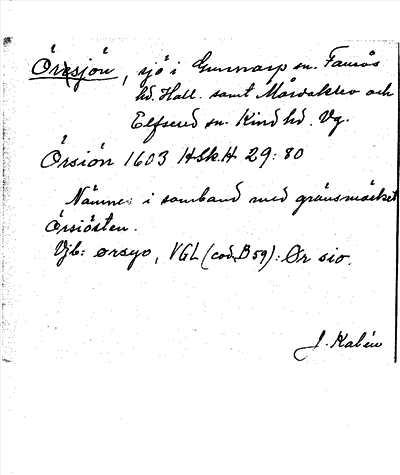 Örsjön, sjö i Gunnarp sn. Faurås
hd. Hall. samt Mårdaklev och
Elfsered sn. Kind hd. Vg.
Örsiön 1603 HSkH 29:80
Nämnes i samband med gränsmärket
Örsiösten.
Vjb: ørsyo, VGL (cod. B 59): Ør sio.
J. Kalén